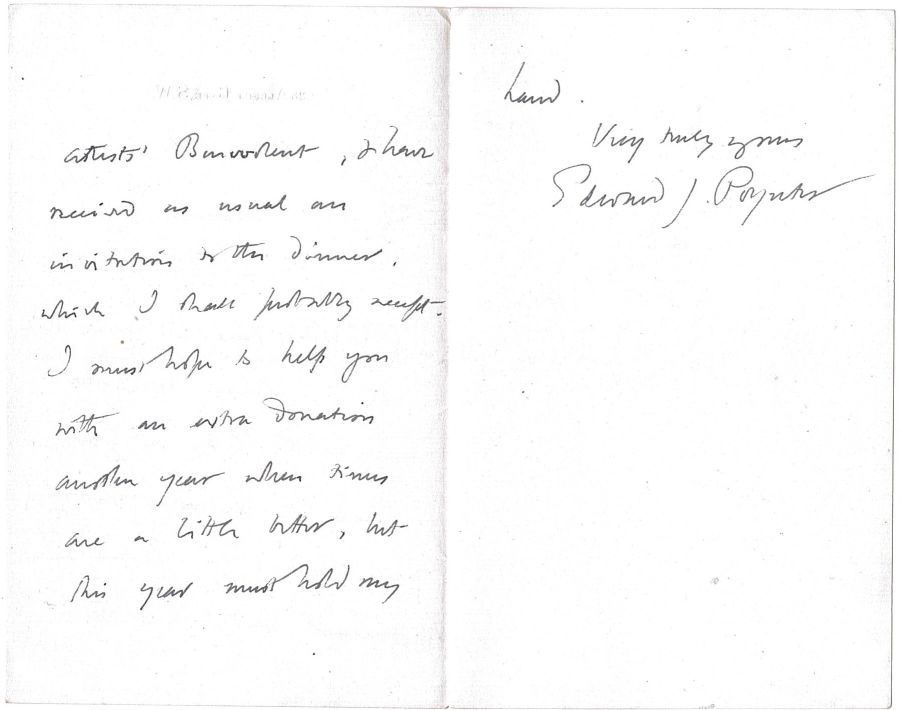 Artists' Benevolent, & have
received as usual an
invitation to the dinner,
which I shall probably accept.
I must hope to help you
with an extra donation
another year when times
are a little better, but
this year must hold my
hand.
Very truly yours
Edward J. Poynter